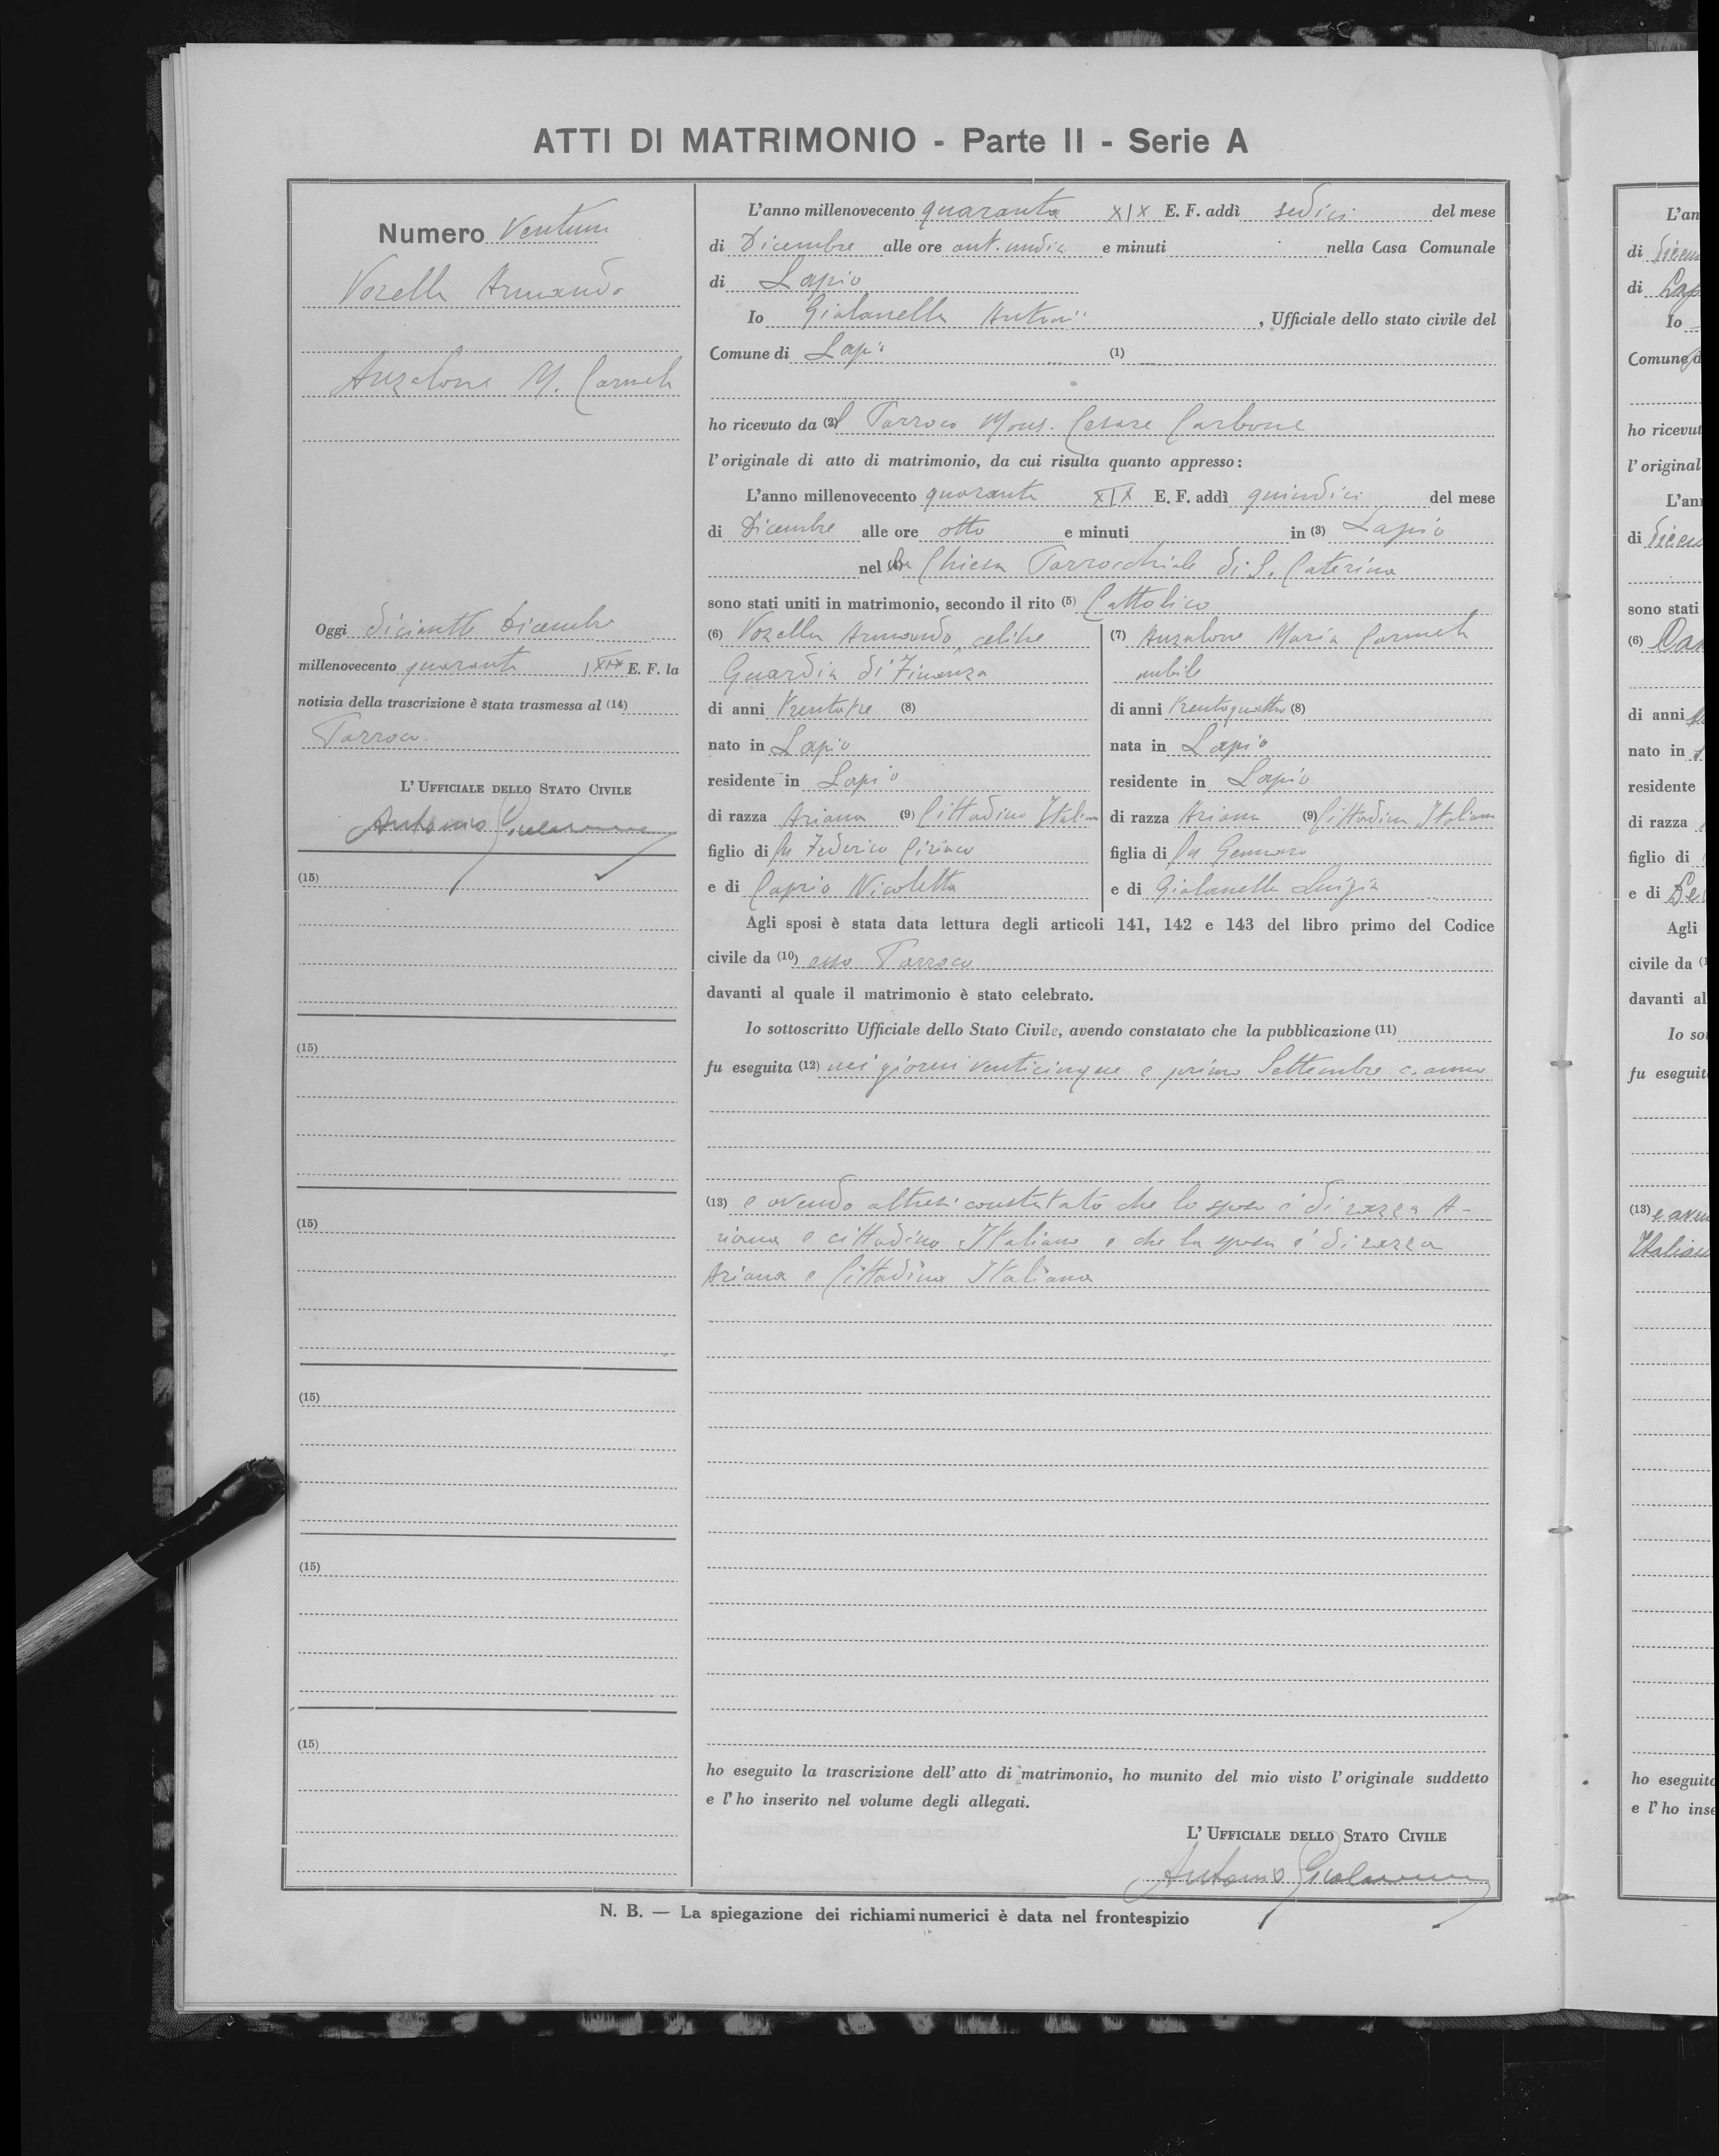 ATTI DI MATRIMONIO - Parte II - Serie A
Numero Ventuno
Vozella Armando
Anzalone M. Carmela
Oggi diciasette Dicembre
millenovecento quaranta XIX E. F. la
notizia della trascrizione è stata trasmessa al (14)
Parroco
L'UFFICIALE DELLO STATO CIVILE
Antonio
(15)
(15)
(15)
(15)
(15)
(15)
L'anno millenovecento quaranta XIX E. F. addì sedici del mese
di Dicembre alle ore ant. undici e minuti nella Casa Comunale
di Lapio
Io Giolanella Antonio, Ufficiale dello stato civile del
Comune di Lapio (1)
ho ricevuto da (2)l Parroco Mons. Cesare Carbone
l'originale di atto di matrimonio, da cui risulta quanto appresso:
L'anno millenovecento quaranta XIX E. F. addì quindici del mese
di Dicembre alle ore otto e minuti in (3) Lapio
nella Chiesa Parrocchiale di S. Caterina
sono stati uniti in matrimonio, secondo il rito (5) Cattolico
(6) Vozella Armando, celibe
Guardia di Finanza
di anni trentatre (8)
nato in Lapio
residente in Lapio
di razza Ariana (9) Cittadino Italiano
figlio di fu Federico Ciriaco
e di Caprio Nicoletta
(7) Anzalone Maria Carmela
nubile
di anni trentaquattro (8)
nata in Lapio
residente in Lapio
di razza Ariana (9) Cittadina Italiana
figlia di fu Gennaro
e di Giolanella Luigia
Agli sposi è stata data lettura degli articoli 141, 142 e 143 del libro primo del Codice
civile da (10) esso Parroco
davanti al quale il matrimonio è stato celebrato.
Io sottoscritto Ufficiale dello Stato Civile, avendo constatato che la pubblicazione (11)
fu eseguita (12) nei giorni venticinque e primo Settembre c. anno
(13) e avendo altresi constatato che lo sposo è di razza A-
riana e cittadino Italiano e che la sposa è di razza
Ariana e Cittadina Italiana
ho eseguito la trascrizione dell'atto di matrimonio, ho munito del mio visto l'originale suddetto
e l'ho inserito nel volume degli allegati.
L'UFFICIALE DELLO STATO CIVILE
Antonio
N. B. — La spiegazione dei richiami numerici è data nel frontespizio
L'an
di Dicem
di Lap
Io
Comune d
ho ricevut
l'original
L'an
di Dicem
sono stati
(6)
di anni
nato in
residente
di razza
figlio di
e di
Agli
civile da (1
davanti al
Io so
fu eseguit
(13) e aven
Italian
ho eseguito
e l'ho inse